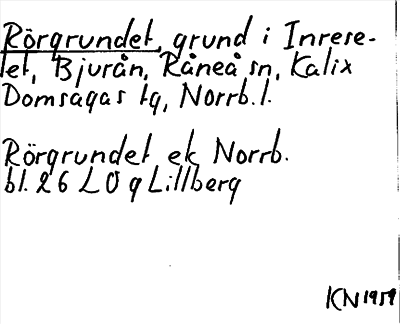 Rörgrundet, grund i Inrese-
let, Bjurån, Råneå sn, Kalix
Domsagas tg, Norrb. l.
Rörgrundet ek Norrb.
bl. 26 LO g Lillberg
KN 1959